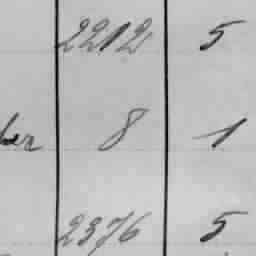 2212 5
8 1
2376 5